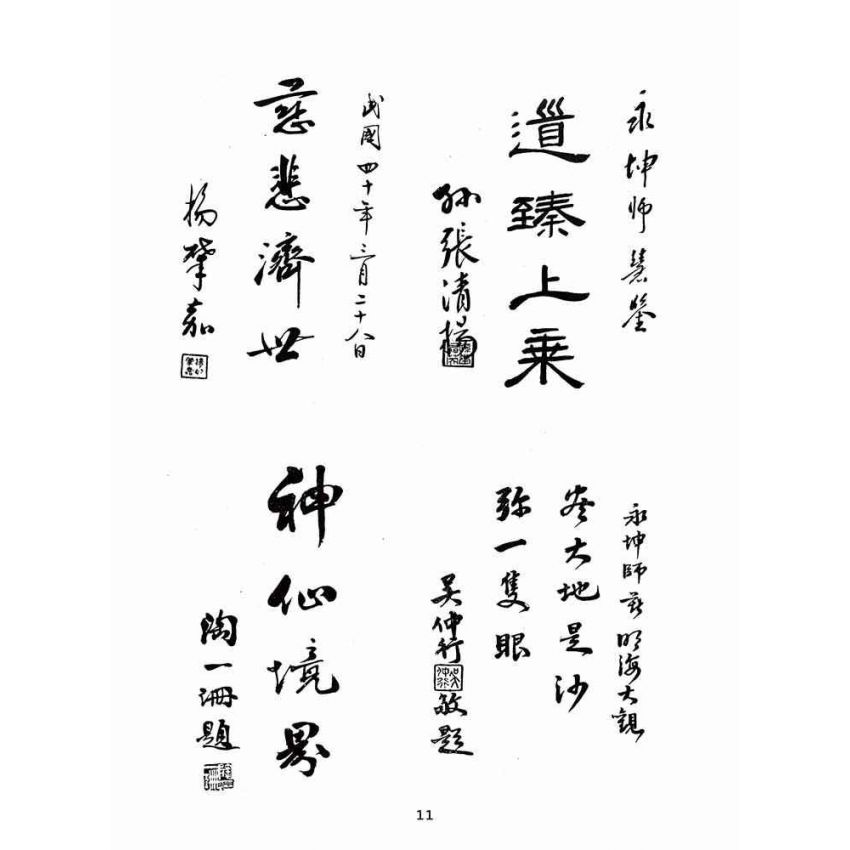 永坤师慧鉴
道臻上乘
孙張清揚
民國四十年三月二十八日
慈悲濟世
楊肇嘉
永坤師明海大觀
盡大地是沙
弥一隻眼
吴仲行敬題
神仙境界
陶一珊題
11